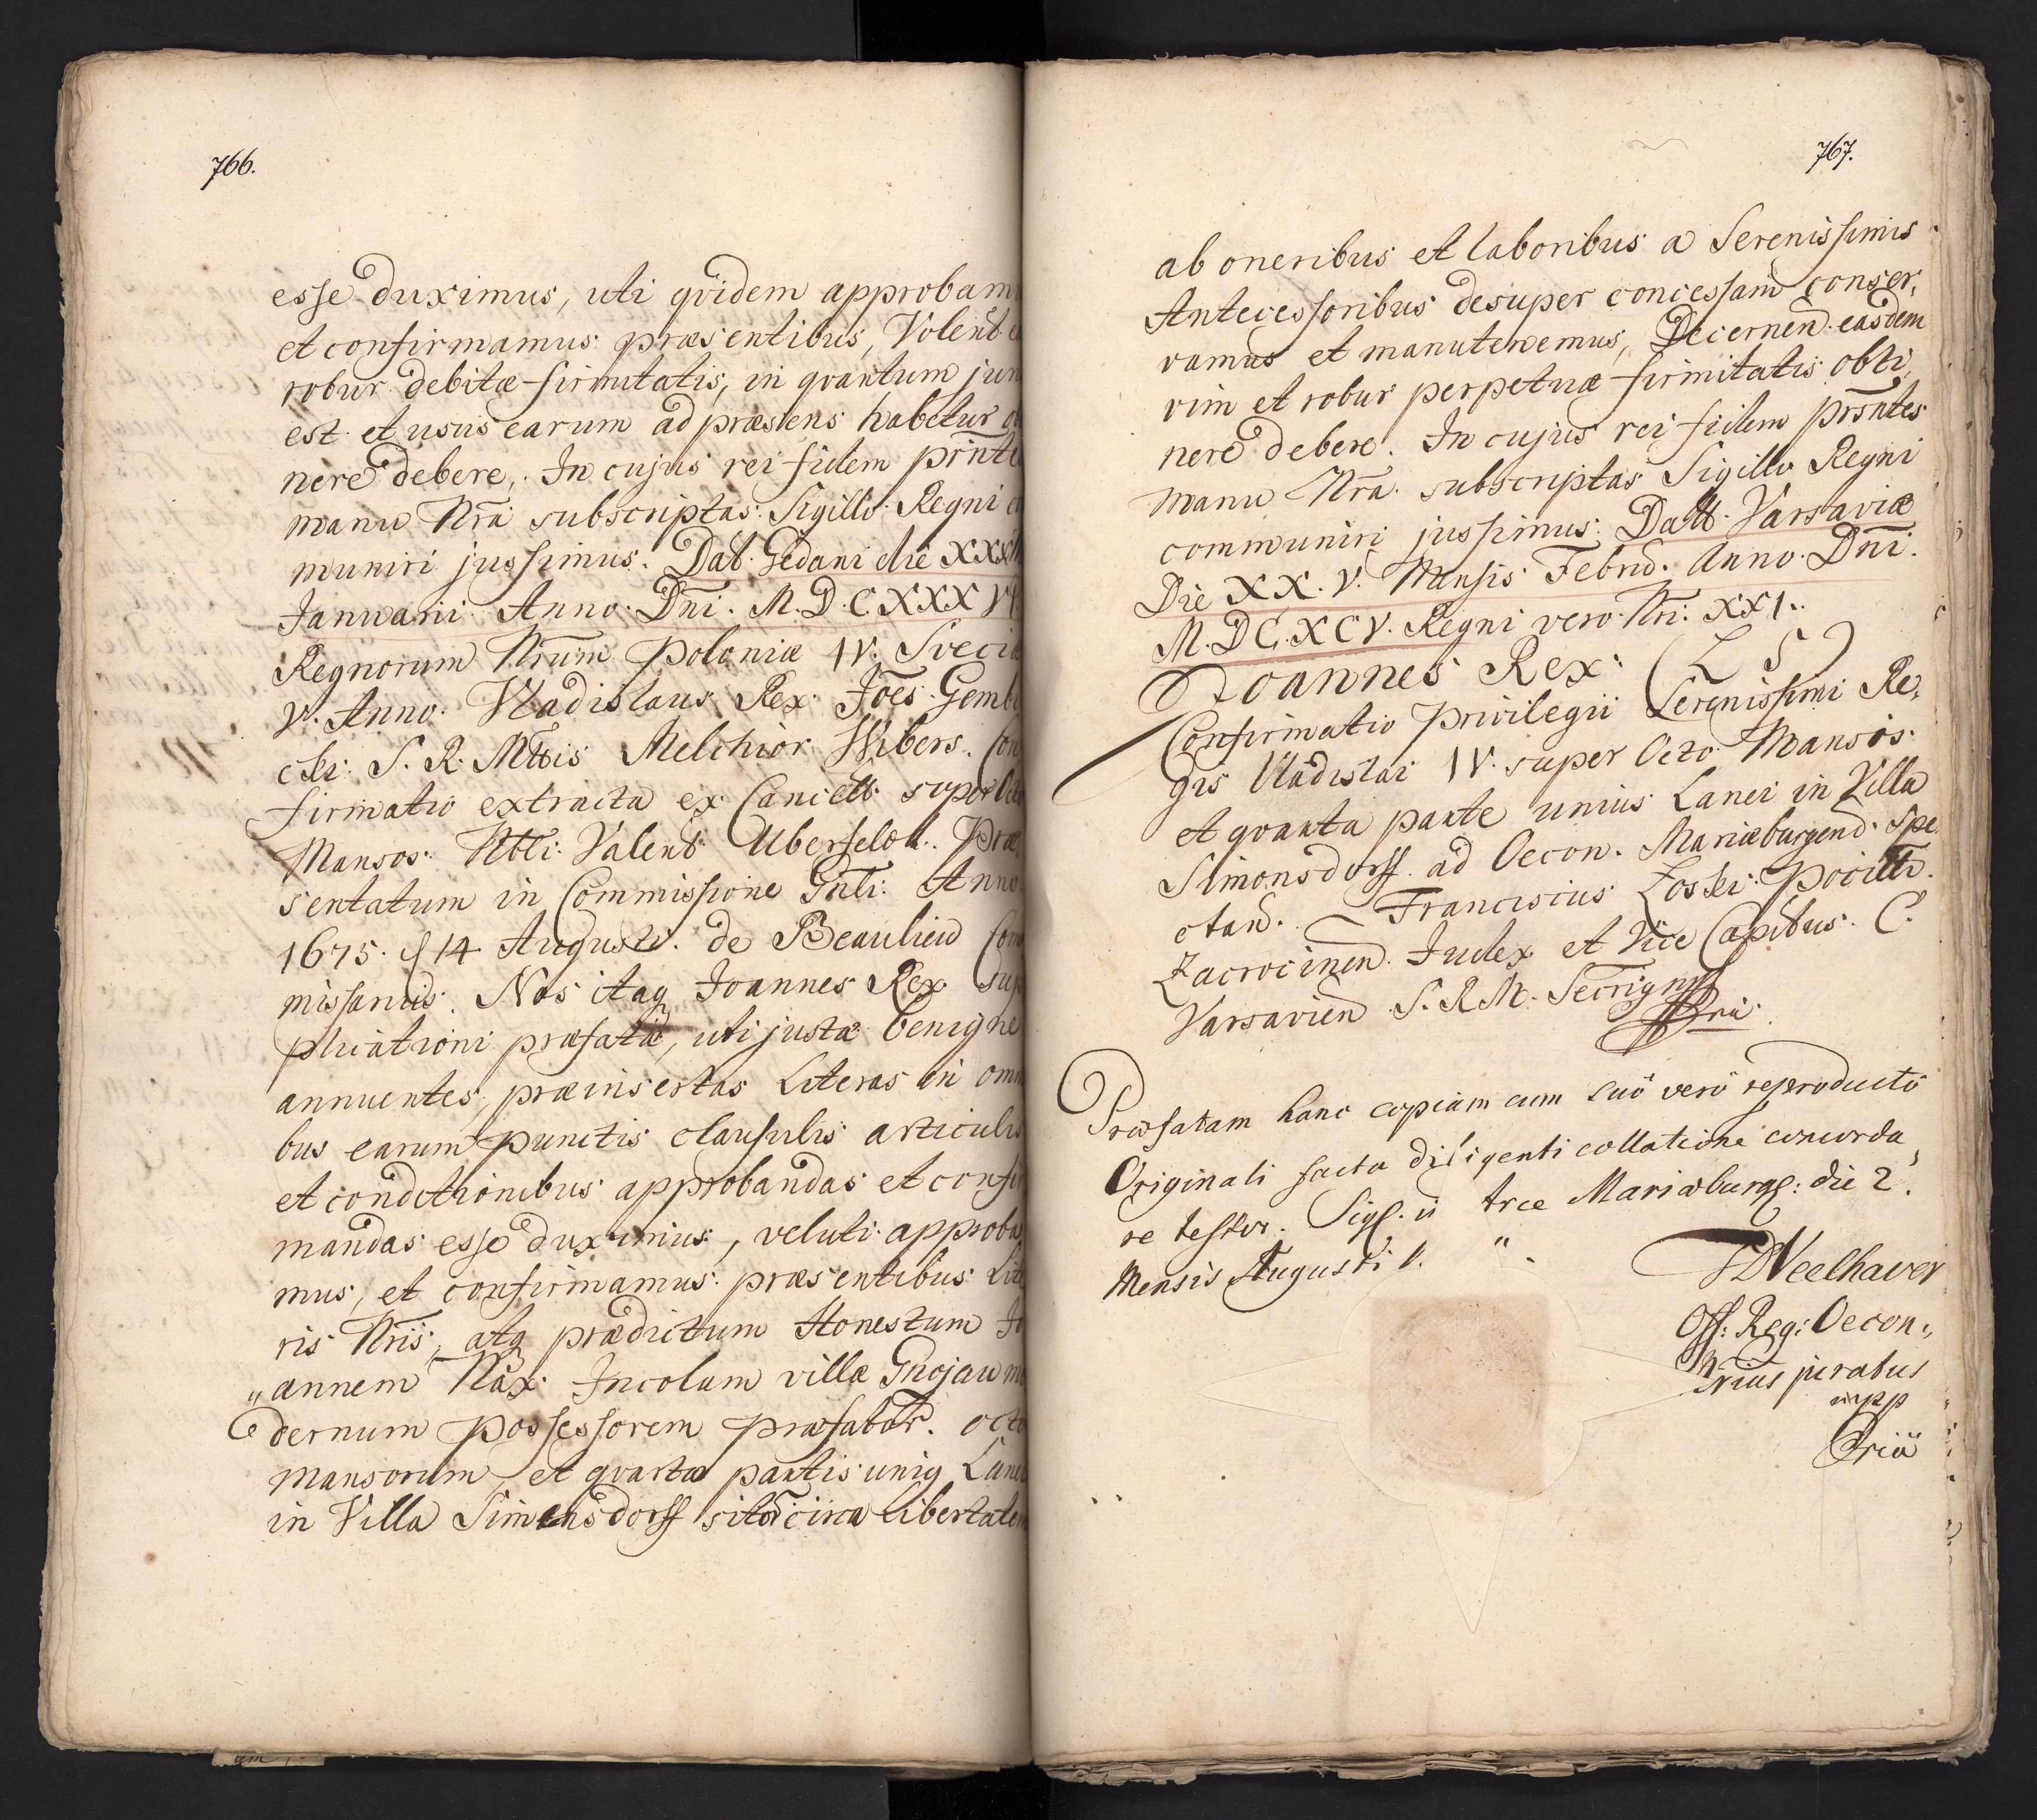 766.
esse duximus, uti qvidem approbam
et confirmamus præsentibus, Volent
robur debitæ firmitatis, in qvantum jur
est et usus earum ad præsens habetur
nere debere. In cujus rei fidem prñte
manu Nrã subscriptas Sigillo Regni
muniri jussimus. Dat. Gedani die XXX
Januarii Anno Dñi. M.D.C.XXXVI
Regnorum Nrum Poloniæ IV. Sveciæ
V. Anno. Vladislaus Rex. Joes Gembi
cki S. R. Mttis Melchior Wibers. Con
firmatio extracta ex Cancell. super Octo
Mansos Nbli Valent. Uberfeldt. Præ
sentatum in Commissione Gñli. Anno
1675. d 14 Augusti. de Beaulieu Com
missarius. Nos itaq Joannes Rex Sup
plicationi præfatæ, uti justæ benigne
annuentes, præinsertas Literas in omni
bus earum punctis clausulis articulis
et conditionibus approbandas et confir
mandas esse duximus, veluti approba
mus, et confirmamus præsentibus Lite
ris Nris, atq prædictum Honestum Jo
„annem Nax Incolam villæ Gnojau mo
dernum possessorem præfator. octo
mansorum, et qvartæ partis uniq Lanei
in Villa Simonsdorff sitor circa Libertatem
767.
ab oneribus et laboribus a Serenissimis
Antecessoribus desuper concessam conser,
vamus et manutenemus, Decernend. easdem
vim et robur perpetuæ firmitatis obti,
nere debere. In cujus rei fidem prsntes
manu Nrã subscriptas Sigillo Regni
communiri jussimus. Datt. Varsaviæ
Die XX.V. Mensis Febru. Anno. Dñi.
M.DC.XCV. Regni vero Nri. XXI.
Joannes Rex. (L S)
Confirmatio Privilegii Serenissimi Re,
gis Vladislai IV. super Octo Mansos
et qvarta parte unius Lanei in Villa
Simonsdorff ad Oecon. Mariæburgend. Spe
ctan. Franciscus Zoski Pocill.
Zacrocinen. Judex et Vice Capitus. C.
Varsavien S. R. M. Secrig
pria
Præfatam hanc copiam cum suô verô reproductô
Originali facta diligenti collatione concorda,
re testor. Sig. in Arce Mariæburg: die 2.
Mensis Augusti
Neelhaver
Off: Reg: Oecon.,
Nrius juratus
mpp
Pria